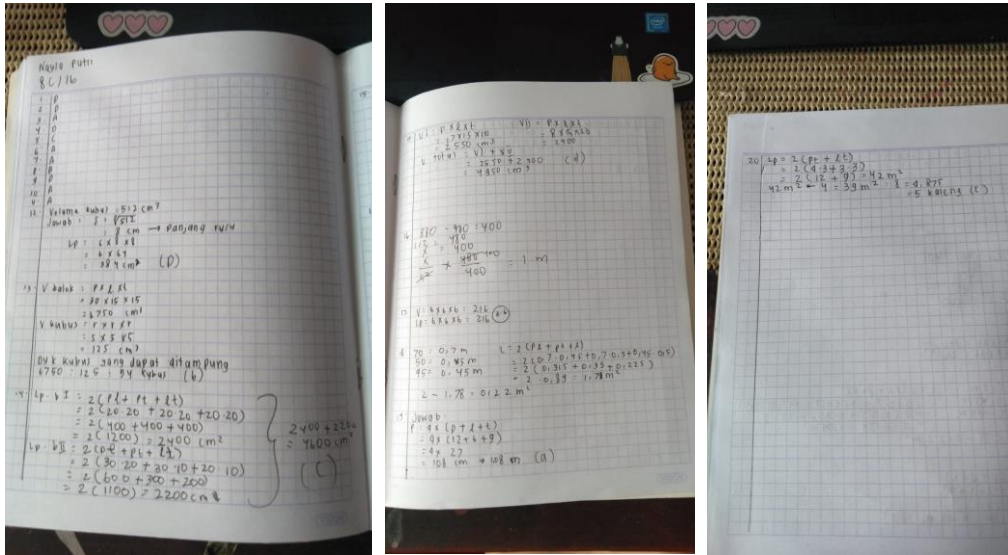 Nayla Putri
8C / 16
1
2 D
3 A
4 D
5 C
6 A
7 A
8 B
9 D
10 A
11 A
12. Volume kubus : 512 cm³
Jawab : S = ∛512
= 8 cm → Panjang rusuk
Lp = 6 x 8 x 8
= 6 x 64
= 384 cm² (D)
13. V balok = P x l x t
= 30 x 15 x 15
= 6750 cm³
V kubus = r x r x r
= 5 x 5 x 5
= 125 cm³
Byk kubus yang dapat ditampung
6750 : 125 = 54 kubus (b)
14. Lp. b I = 2(Pl + Pt + lt)
= 2(20.20 + 20.20 + 20.20)
= 2(400 + 400 + 400)
= 2(1200) = 2400 cm²
Lp. b II = 2(pl + pt + lt)
= 2(30.20 + 30.10 + 20.10)
= 2(600 + 300 + 200)
= 2(1100) = 2200 cm²
2400 + 2200
= 4600 cm²
(C)
15
intel
V I = P x l x t
= 17 x 15 x 10
= 2550 cm³
V II = P x l x t
= 2400
V total = VI + VII
= 2550 + 2400 (d)
= 4950 cm³
16 880 - 480 = 400
= 1 m
17 V = 6 x 6 x 6 = 216
LP = 6 x 6 x 6 = 216
70 = 0,7 m
50 = 0,5 m
45 = 0,45 m
= 2(0,315 + 0,35 + 0,225)
= 2 . 0,89 = 1,78 m²
2 - 1,78 = 0,22 m²
19 Jawab :
P = 4 x (p + l + t)
= 4 x (12 + 6 + 9)
= 4 x 27
= 108 cm → 108 m (a)
20 Lp = 2(pt + lt)
= 2(4.3 + 3.3)
= 2(12 + 9) = 42 m²
42 m² - 4 = 39 m² : 8 = 4,875
= 5 kaleng (c)